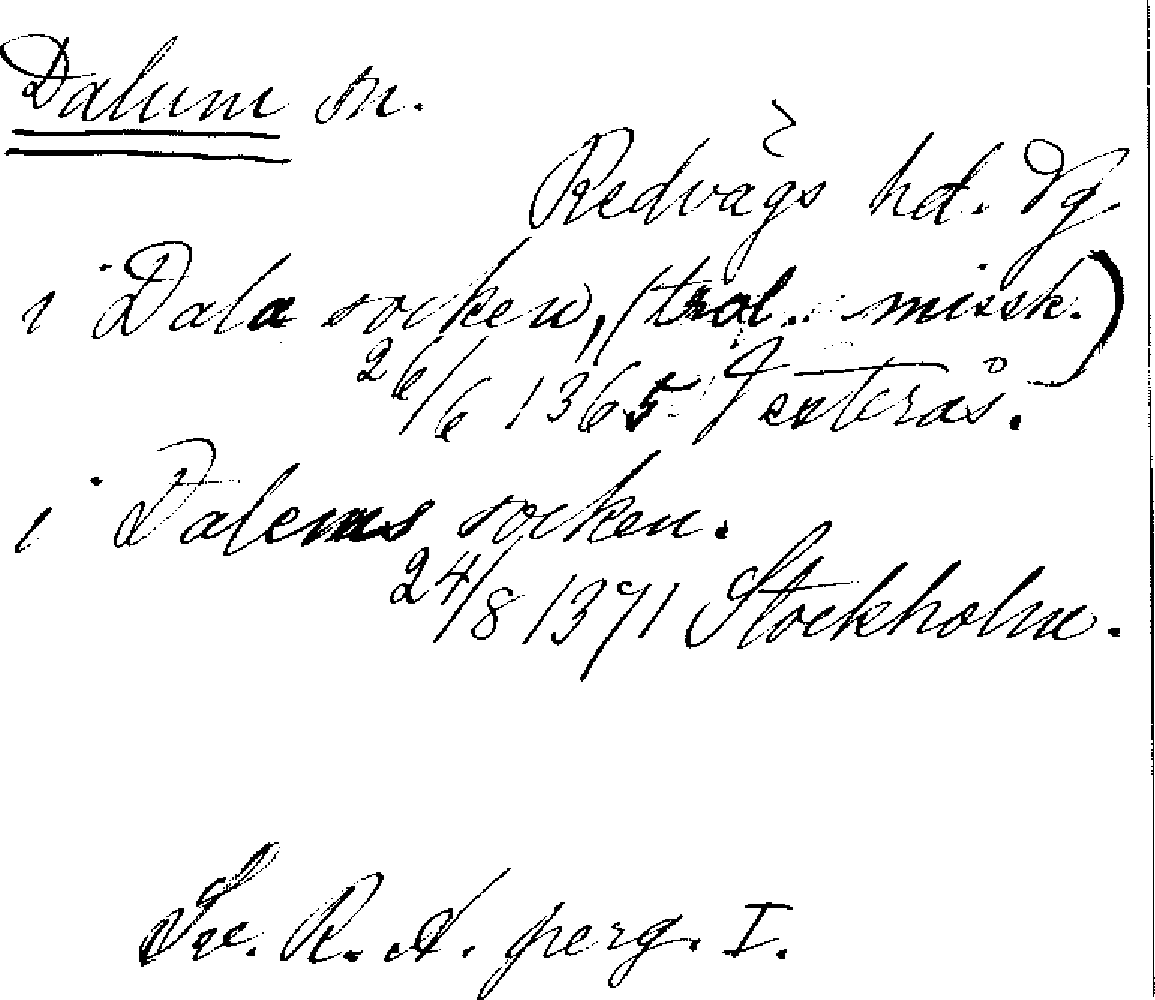 Dalum sn.
Redvägs hd. Vg
i Dala socken, (trol. missk.)
26/6 1365
i Dalems socken.
24/8 1371 Stockholm.
Sv. R. A. perg. I.